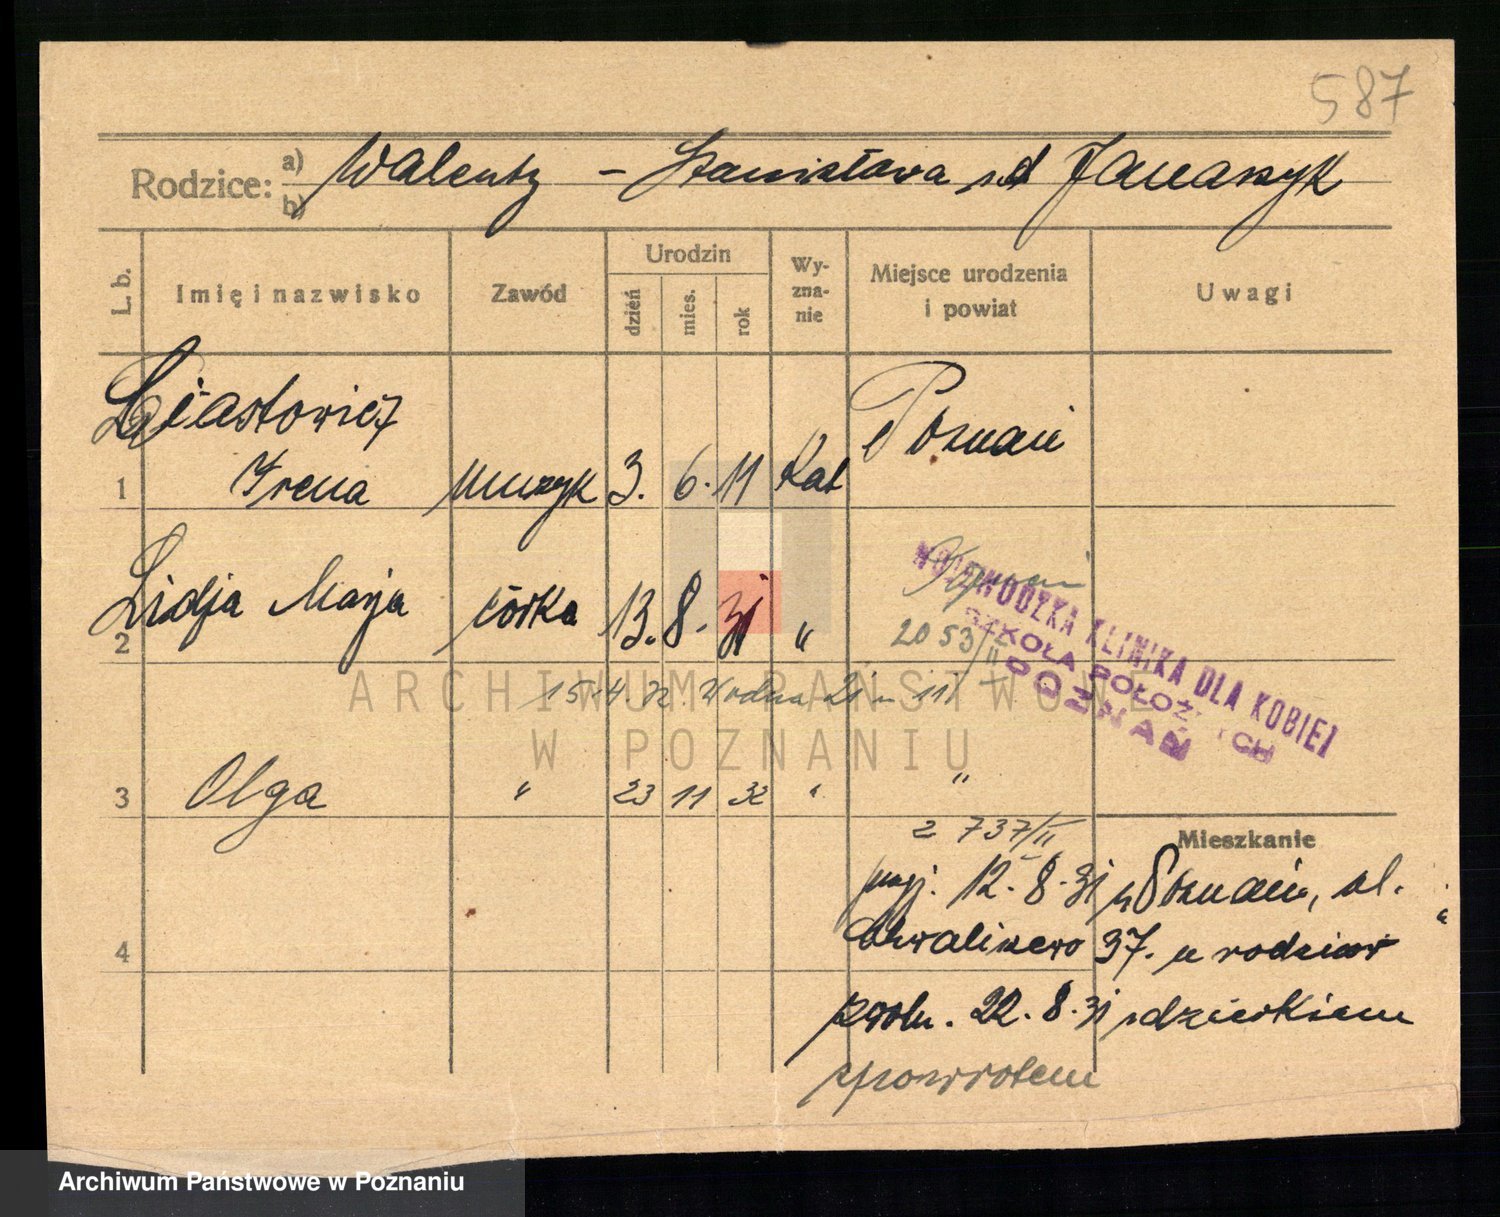 587
Rodzice: a) b) Walenty - Stanisława z d Janaszyk
L. b. Imię i nazwisko Zawód Urodzin dzień mies. rok Wyznanie Miejsce urodzenia i powiat Uwagi
Ciastowicz
1 Irena muzyk 3. 6. 11 Kat Poznań
2 Lidja Marja córka 13. 8. 31 "
2053/II
WOJEWÓDZKA KLINIKA DLA KOBIET
SZKOŁA POŁOŻNYCH
POZNAŃ
15.4.32 Wodna 21 m 11
ARCHIWUM PAŃSTWOWE
W POZNANIU
3 Olga " 23 11 32 " "
2737/II
Mieszkanie
12. 8. 31 Poznań, ul.
4 Chwaliszewo 37. u rodziców
22. 8. 31 z dzieckiem
zpowrotem
Archiwum Państwowe w Poznaniu